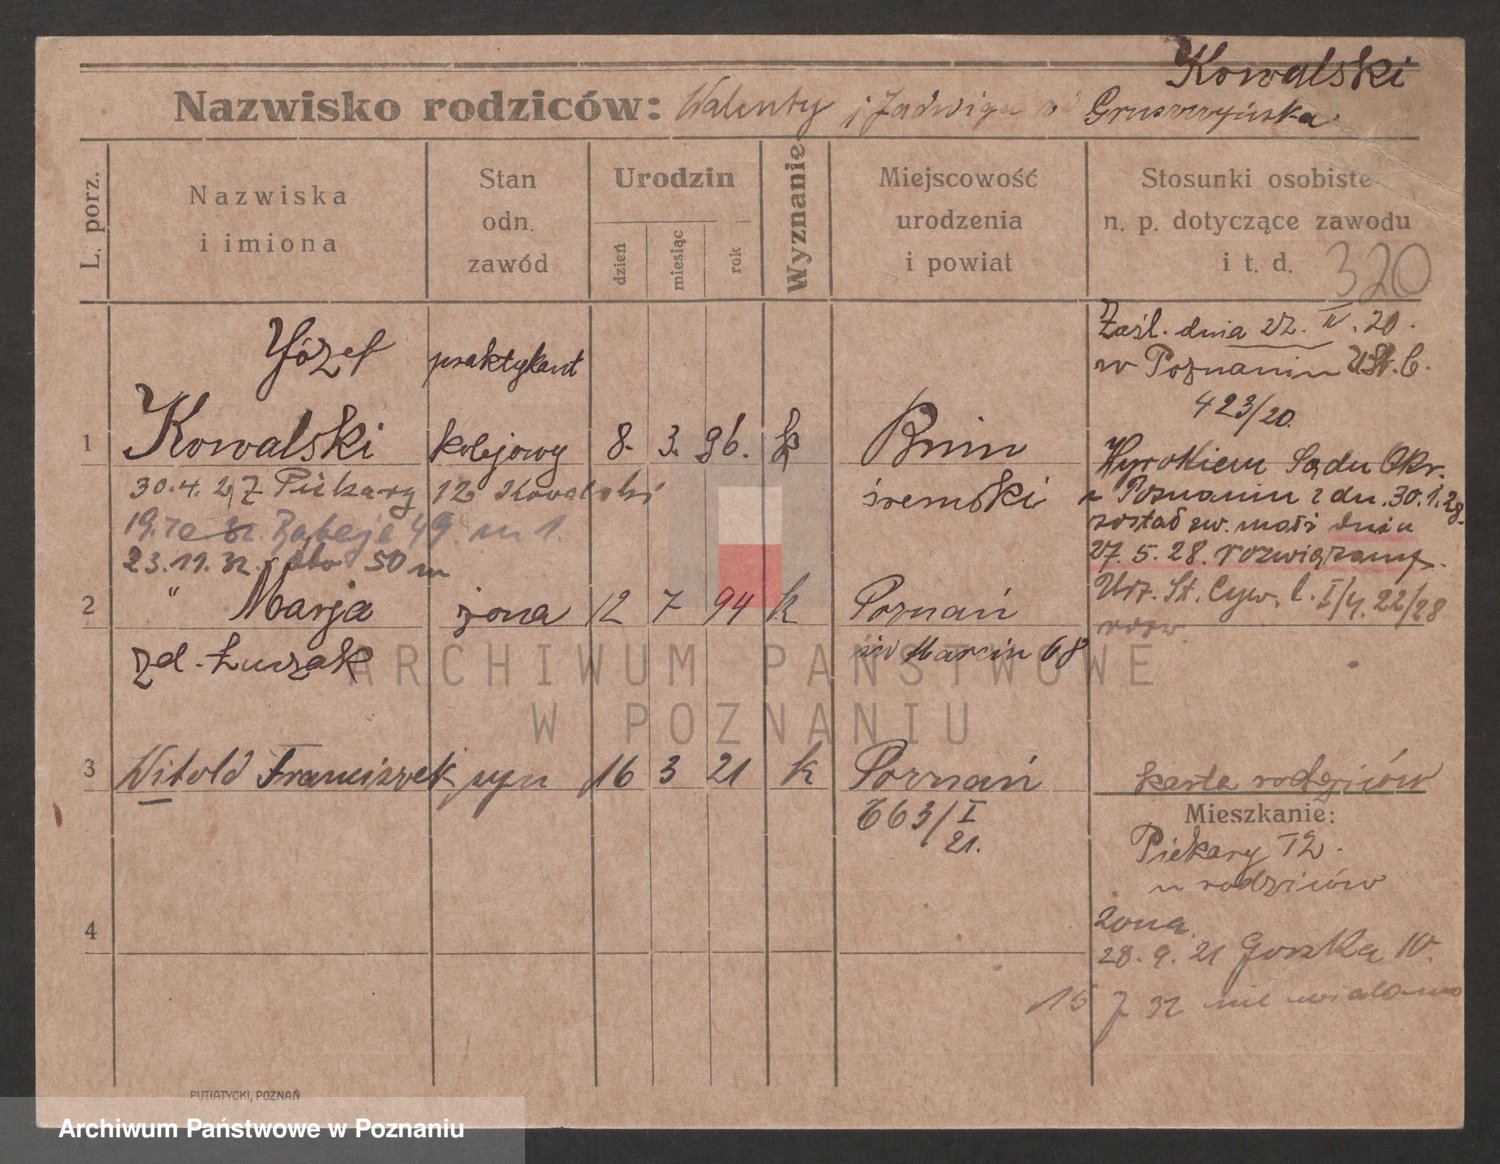 Kowalski
Nazwisko rodziców: Walenty i Jadwiga Gruszczyńska
L. porz.
Nazwiska
i imiona
Stan
odn.
zawód
Urodzin
dzień
miesiąc
rok
Wyznanie
Miejscowość
urodzenia
i powiat
Stosunki osobiste
n. p. dotyczące zawodu
i t. d.
320
Józef praktykant
1 Kowalski kolejowy 8. 3. 96. k Bnin
śremski
30.4.27 Piekary 12 Kowalski
19. 49 m 1
23.11.32. 50 m
Zaśl. dnia 27. IV. 20.
w Poznaniu U.St.C.
423/20.
Wyrokiem Sądu Okr.
w Poznaniu z dn. 30.1.28.
został zw. małż dniu
27.5.28. rozwiązany.
Urz. St. Cyw. l. I/4. 22/28
rozw.
2 " Marja żona 12 7 94 k Poznań
zd. Łuczak św Marcin 68
3 Witold Franciszek syn 16 3 21 k Poznań
663/I
21.
karta rodziców
Mieszkanie:
Piekary 12.
u rodziców
żona
28.9.21 Gorzka 10.
15 7 32 nie wiadomo
4
PUTIATYCKI, POZNAŃ
ARCHIWUM PAŃSTWOWE
W POZNANIU
Archiwum Państwowe w Poznaniu